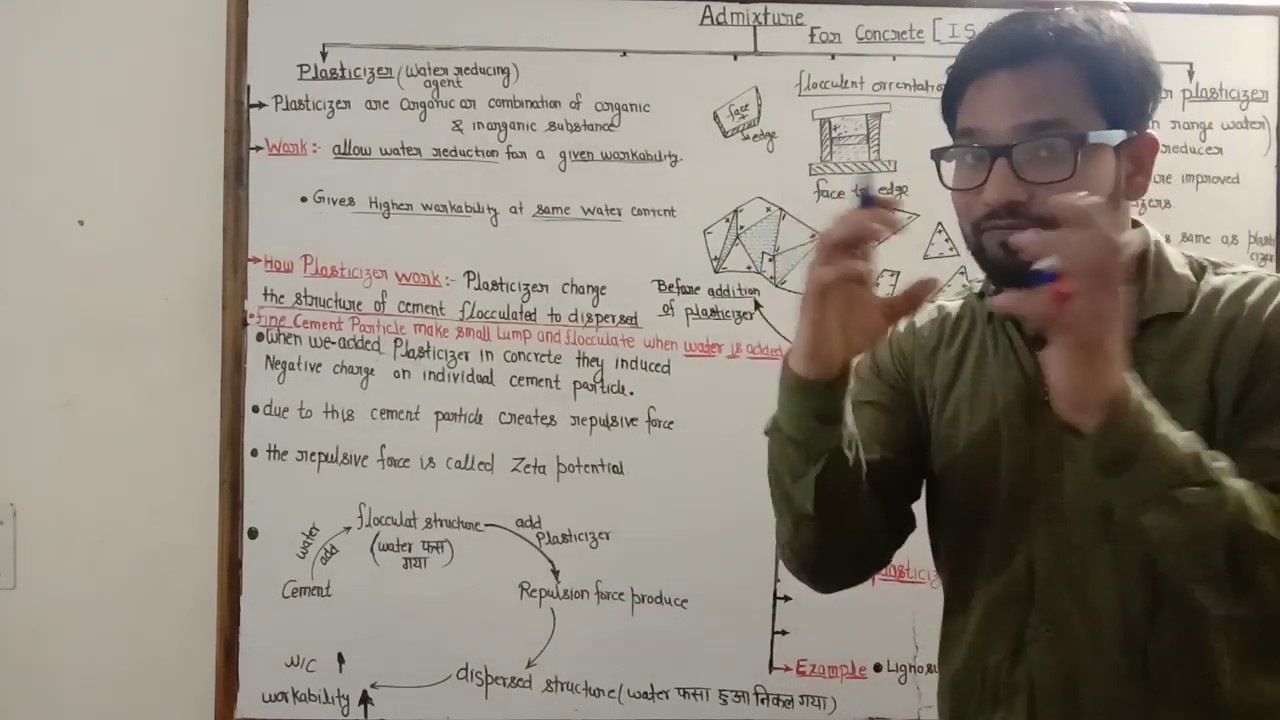 Admixture
For Concrete [ I S
Plasticizer (water reducing)
agent
→ Plasticizer are organic or combination of organic
& inorganic substance
→ Work :- allow water reduction for a given workability.
• Gives Higher workability at same water content
→ How Plasticizer work :- Plasticizer change
the structure of cement flocculated to dispersed
• Fine Cement Particle make small Lump and flocculate when water is added
• when we added Plasticizer in concrete they induced
Negative charge on individual cement particle.
• due to this cement particle creates repulsive force
• the repulsive force is called Zeta potential
water add
flocculat structure
(water फस
गया)
add
plasticizer
Cement
Repulsion force produce
W/C ↑
workability ↑
dispersed structure (water फसा हुआ निकल गया)
flocculent orrentatio
face
edge
face to edge
Before addition
of plasticizer
plasticizer
n range water)
reducer
re improved
izers.
s same as plasti
cizer
lastici
→ Example • Lignosu